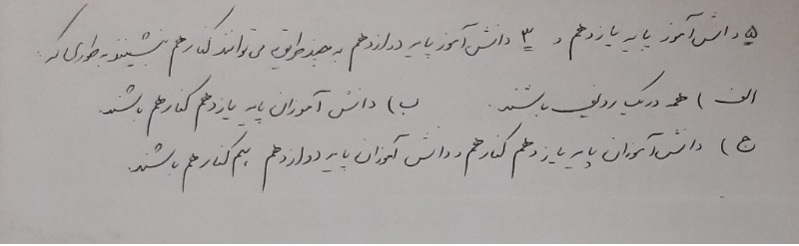 ۵ دانش آموز پایه یازدهم و ۳ دانش آموز پایه دوازدهم به چند طریق می توانند کنار هم بنشینند به طوری که:
الف) همه در یک ردیف باشند. ب) دانش آموزان پایه یازدهم کنار هم باشند.
ج) دانش آموزان پایه یازدهم کنار هم و دانش آموزان پایه دوازدهم هم کنار هم باشند.